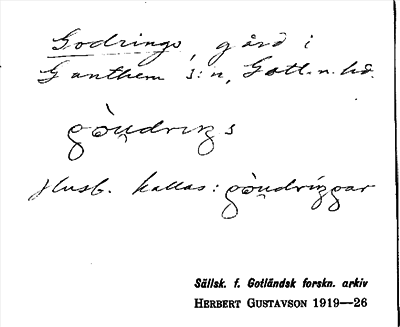 Godrings, gård i
Ganthem s:n, Gotl. n. hd.
gòu̯drıŋs
Husb. kallas: gòu̯dríŋgar
Sällsk. f. Gotländsk forskn. arkiv
HERBERT GUSTAVSON 1919—26